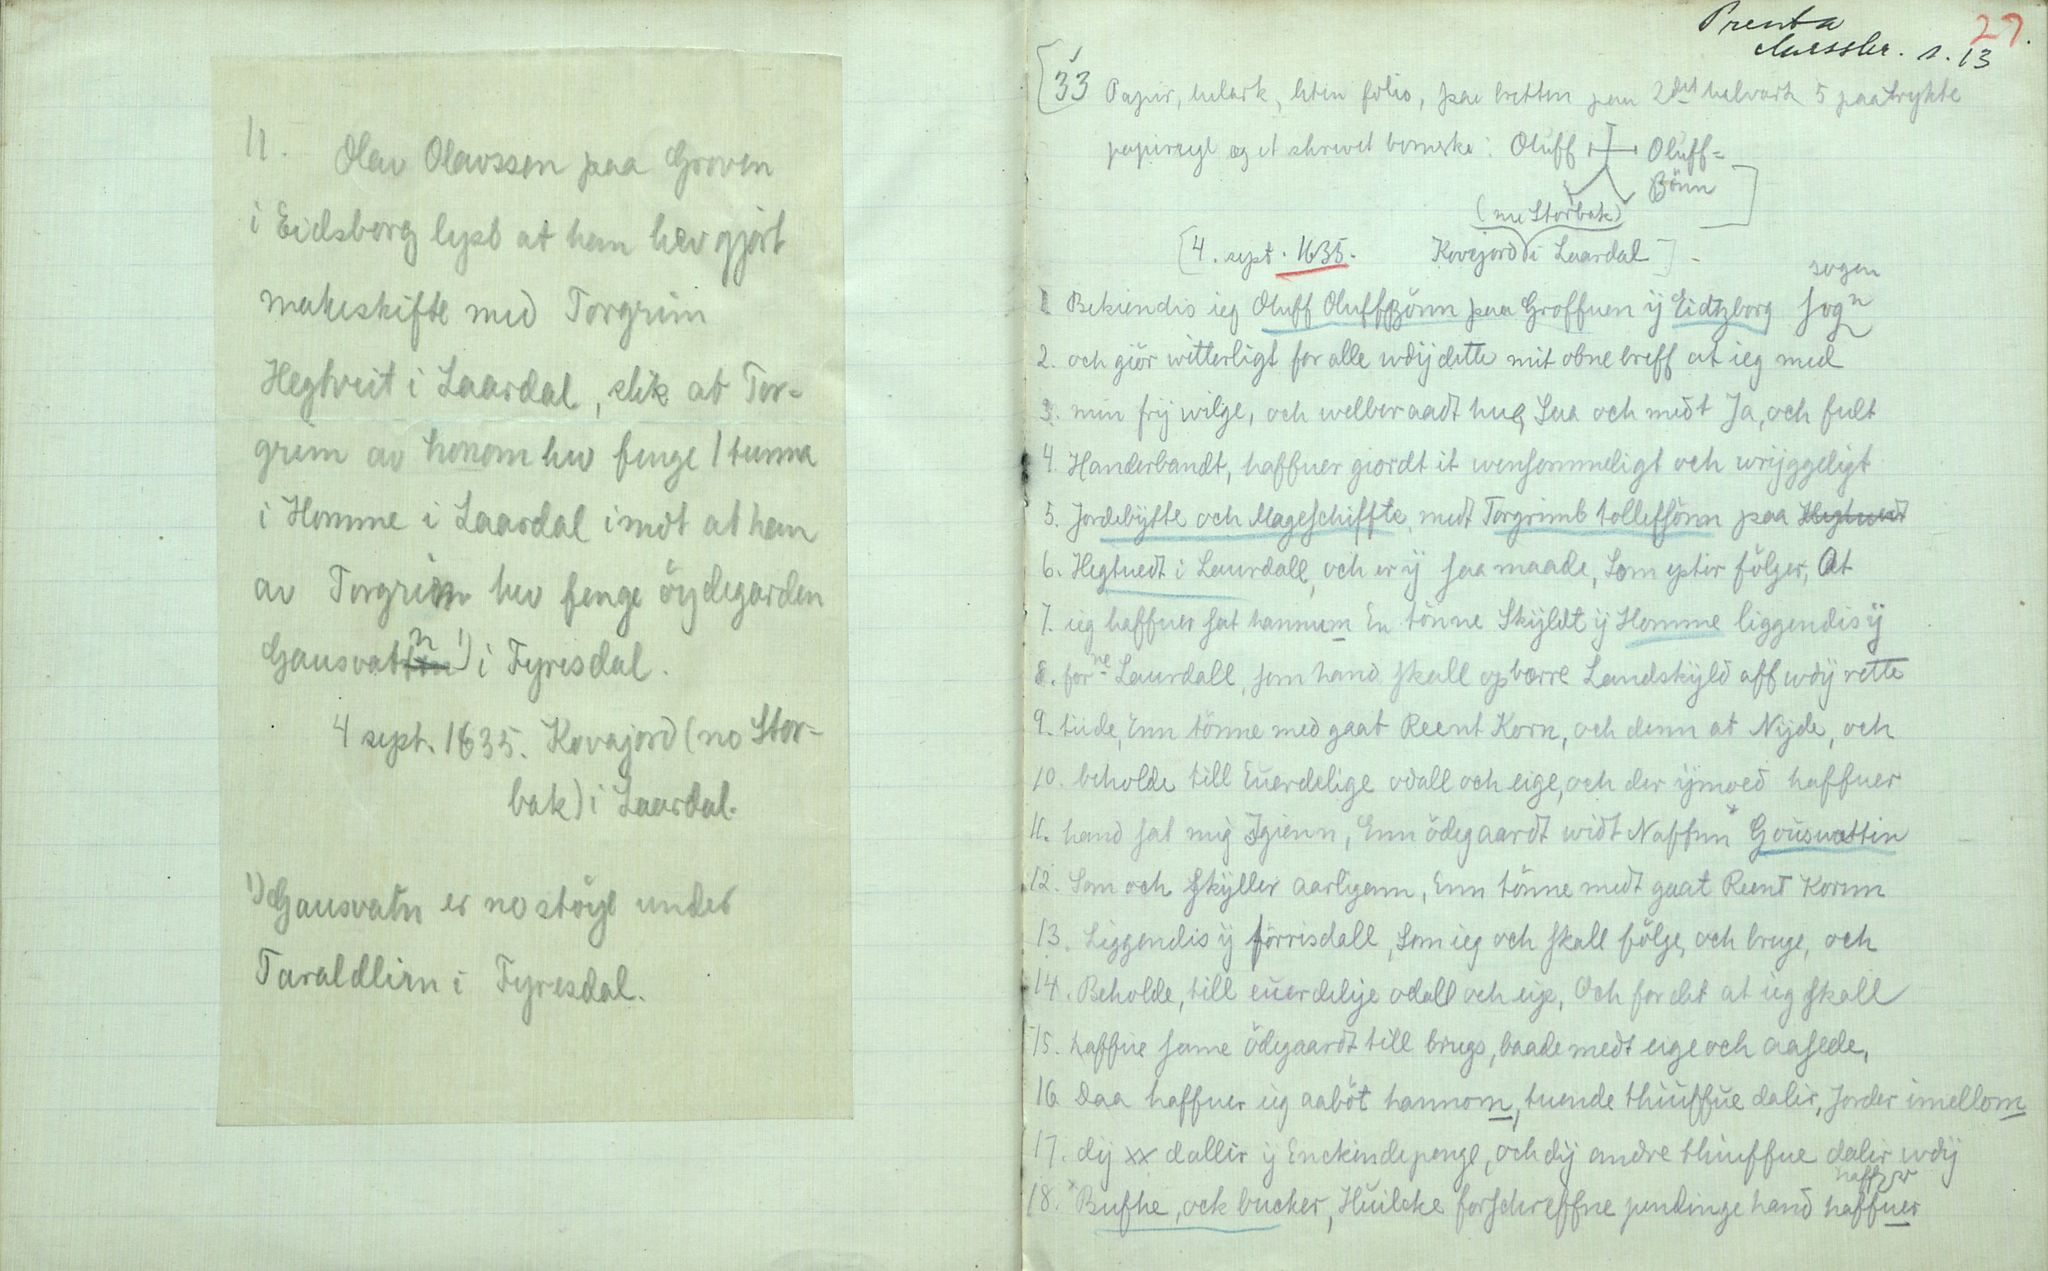 11. Olav Olavssen paa Groven
i Eidsborg lyst at han hev gjort
makeskifte med Torgrim
Hegtveit i Laardal, slik at Tor-
grim av honom hev fenge 1 tunna
i Homme i Laardal imot at han
av Torgrim hev fenge öydegarden
Gausvatn 1) i Fyresdal.
4 sept. 1635. Kovajord (no Stor-
bak) i Laardal.
1) Gausvatn er no støyl under
Taraldlien i Fyresdal.
Prenta
s. 13
27.
33 Papir, heilark, liten folio, paa bretten paa 2det halvark 5 paatrykte
papirsegl og et skrevet bomerke: Oluff Oluff-
Bönn
(nu Storbak)
[4. sept. 1635. Kovejord i Laardal]
sogen
1. Bekiendis ieg Oluff OluffBönn paa Groffuen ÿ Eidtzborg sogn
2. och giör witterligt for alle wdÿ dette mit obne breff at ieg med
3. min frÿ wilge, och welberaadt hue, Sua och medt Ja, och fult
4. Handerbandt, haffuer giordt it wensommeligt och wrÿggeligt
5. Jordebÿtte och Mageschiffte, medt Torgrimb tollefsönn paa Hegtuedt
6. Hegtuedt i Laurdall, och er ÿ saa maade, Som epter fölger, At
7. ieg haffuer sat hannum En tönne Skÿldt ÿ Homme liggendis ÿ
8. forne Laurdall, som hand skall opbære Landskÿld aff wdÿ rette
9. tiide, Enn tönne med gaat Reent Korn, och denn at Nÿde, och
10. beholde till Euerdelige odall och eige, och der ÿmoed haffuer
11. hand sat mig Igienn, Enn ödegaardt widt Naffnn* Gouswattin
12. Som och Skÿller aarligenn, Enn tönne medt gaat Reent Kornn
13. Liggendis ÿ förrisdall, Som ieg och skall fölge, och bruge, och
14. Beholde, till euerdelige odall och eige, Och for det at ieg skall
15. haffue same ödegaardt till brugs, baade medt eige och aasede,
16 Daa haffuer ieg aaböt hannom, tuende thiuffue daler, Jorder imellom
17. dÿ xx daller ÿ Enckende penge, och dÿ andre thiuffue daler wdÿ
haffuer
18. *Bufhe, ock bucker, Huilcke forschreffne pendinge hand haffuer